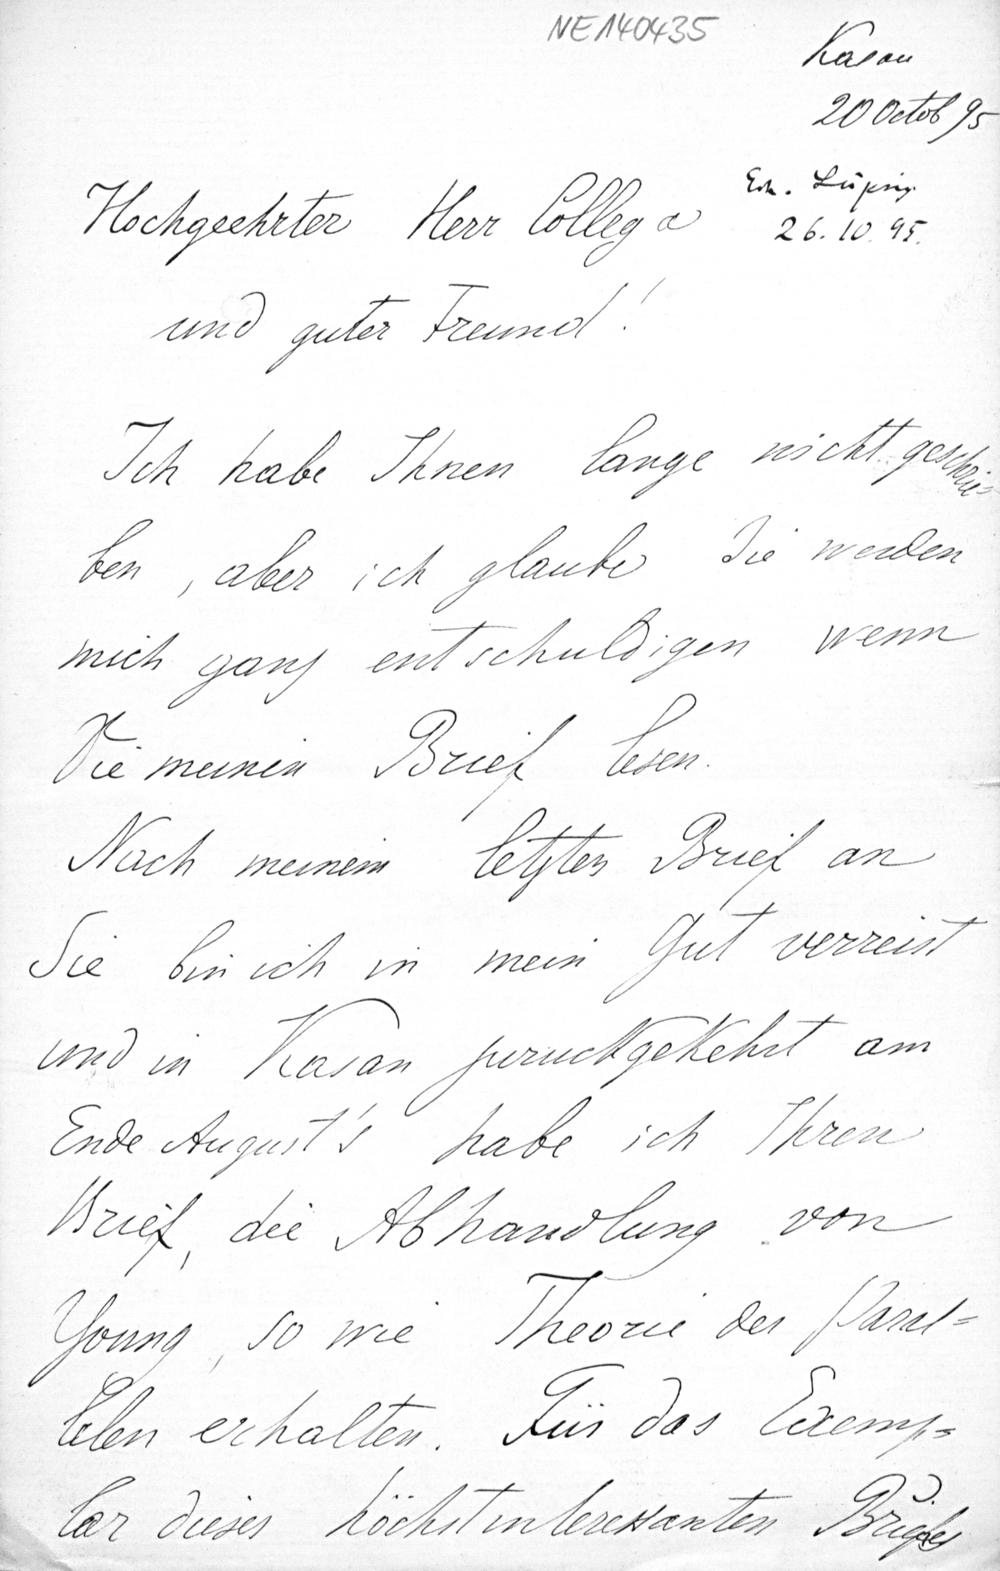 NE140435
Kasan
20 Octob 95
Hochgeehrter Herr Collega
Erh. Leipzig
26.10.95.
und guter Freund!
Ich habe Ihnen lange nicht geschrie-
ben, aber ich glaube Sie werden
mich ganz entschuldigen wenn
Sie meinen Brief lesen.
Nach meinem letzten Brief an
Sie bin ich in mein Gut verreist
und in Kasan zuruckgekehrt am
Ende August's habe ich Ihren
Brief, die Abhandlung von
Young, so wie Theorie der Paral-
lelen erhalten. Für das Exemp-
lar dieses höchst interessanten